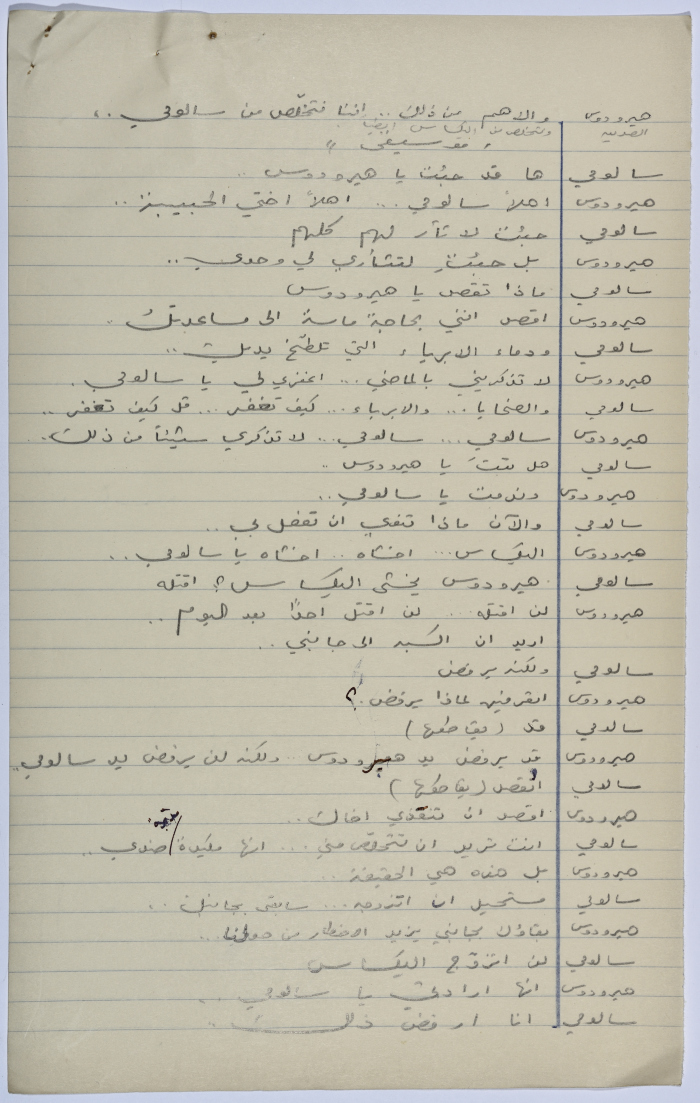 هيرودوس والاهم من ذلك .. اننا نتخلّص من سالومي ..
ونتخلص من اليكساس ايضاً
" موسيقى "
سالومي ها قد جئت يا هيرودوس ..
هيرودوس اهلاً سالومي ... اهلاً اختي الحبيبة ..
سالومي جئت لاثأر لهم كلهم
هيرودوس بل جئتِ لتثأري لي وحدي ..
سالومي ماذا تقصد يا هيرودوس
هيرودوس اقصد انني بحاجة ماسة الى مساعدتك ..
سالومي ودماء الابرياء التي تلطّخ يديك ..
هيرودوس لا تذكريني بالماضي ... اغفري لي يا سالومي .
سالومي والضحايا ... والابرياء ... كيف تغفر ... قل كيف تغفر ..
هيرودوس سالومي ... سالومي ... لا تذكري شيئاً من ذلك .
سالومي هل تبتَ يا هيرودوس ..
هيرودوس وندمت يا سالومي ..
سالومي والآن ماذا تنوي ان تفعل بي ..
هيرودوس اليكساس ... اخشاه .. اخشاه يا سالومي ..
سالومي هيرودوس يخشى اليكساس ؟ اقتله
هيرودوس لن اقتله ... لن اقتل احداً بعد اليوم ..
اريد ان اكسبه الى جانبي ..
سالومي ولكنه يرفض
هيرودوس اتعرفين لماذا يرفض .. ؟
سالومي قد ( يقاطعها )
هيرودوس قد يرفض يد هيرودوس .. ولكنه لن يرفض يد سالومي ..
سالومي أتقصد ( يقاطعها )
هيرودوس اقصد ان تنقذي اخاك ..
سالومي انت تريد ان تتخلّص مني ... انها مكيدة ضدي ..
هيرودوس بل هذه هي الحقيقة ..
سالومي مستحيل ان اتزوجه ... سابقى بجانبك ..
هيرودوس بقاؤك بجانبي يزيد الاخطار من حولنا ..
سالومي لن اتزوّج اليكساس
هيرودوس انها ارادتي يا سالومي ..
سالومي انا ارفض ذلك ..